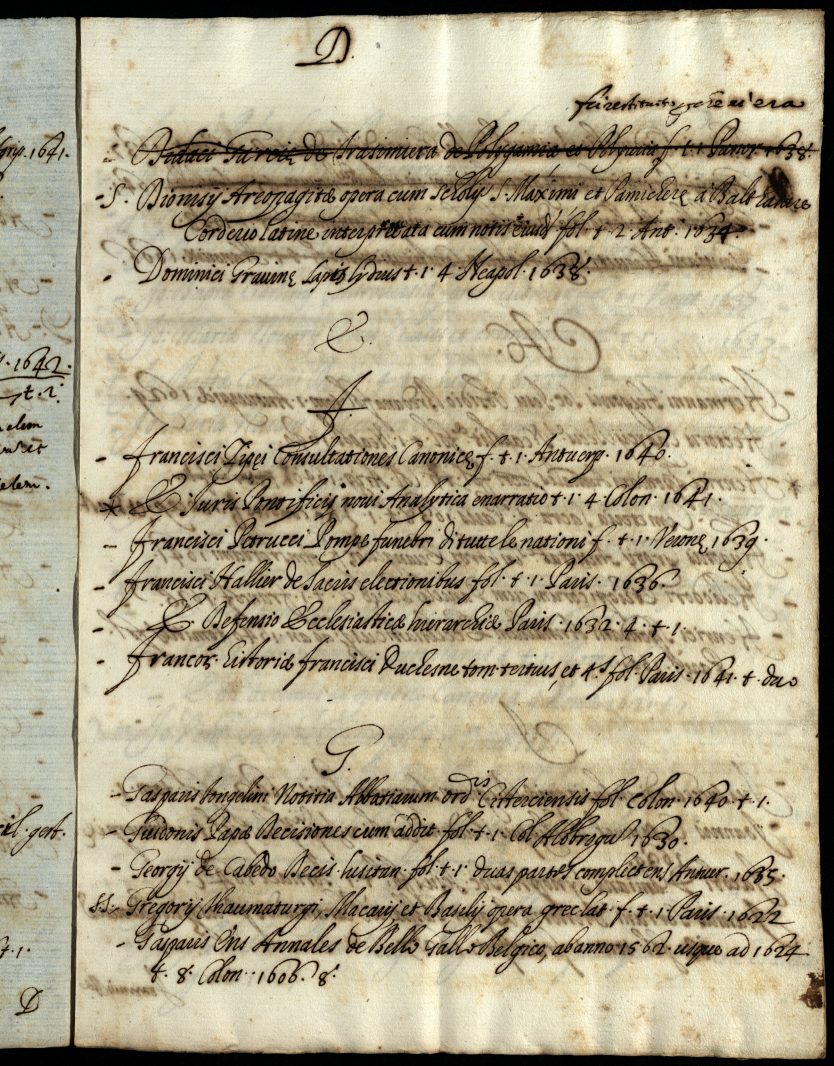 D.
fu restituito
Didaci Garcie de Trasimiera de Polygamia et Polyuiria f. t. 1. Panor. 1638.
S. Dionisÿ Areopagitę opera cum scholÿs S. Maximi et Pamichere a Balthasare
Corderio latine interpretata cum notis eiusd. fol. t. 2. Ant. 1634.
- Dominici Grauinę Lapis lydius t. 1. 4. Neapol. 1638.
E.
F.
- Francisci Zipei Consultationes Canonicę f. t. 1. Antuerp. 1640.
* E. Iuris Pontificij noui Analytica enarratio t. 1. 4. Colon. 1641.
- Francisci Petrucci Pompe funebri di tutte le nationi f. t. 1. Veronę 1639.
- Francisci Hallier de Sacris electionibus fol. t. 1. Paris. 1636.
- E. Defensio Ecclesiasticæ hierarchiæ Paris. 1632. 4. t. 1.
- Francor. Historiæ Francisci Duchesne tom. tertius, et 4.s fol. Paris. 1641. t. duo
G.
- Gasparis Iongelini Notitia Abbatiarum ord.is Cisterciensis fol. Colon. 1640. t. 1.
- Guidonis Papæ Decisiones cum addit. fol. t. 1. Col. Allobrog. 1630.
- Georgij de Cabedo Decis. lusitan. fol. t. 1. duas partes complectens Antuer. 1635.
SS. - Gregorij Thaumaturgi, Macarij et Basilij opera grec. lat. f. t. 1. Paris. 1622
- Gasparis Ens Annales de Bello Gallo Belgico, ab anno 1562. usque ad 1624
t. 8. Colon. 1606. 8.
1641.
1642.
t. 2.
t. 1.
D